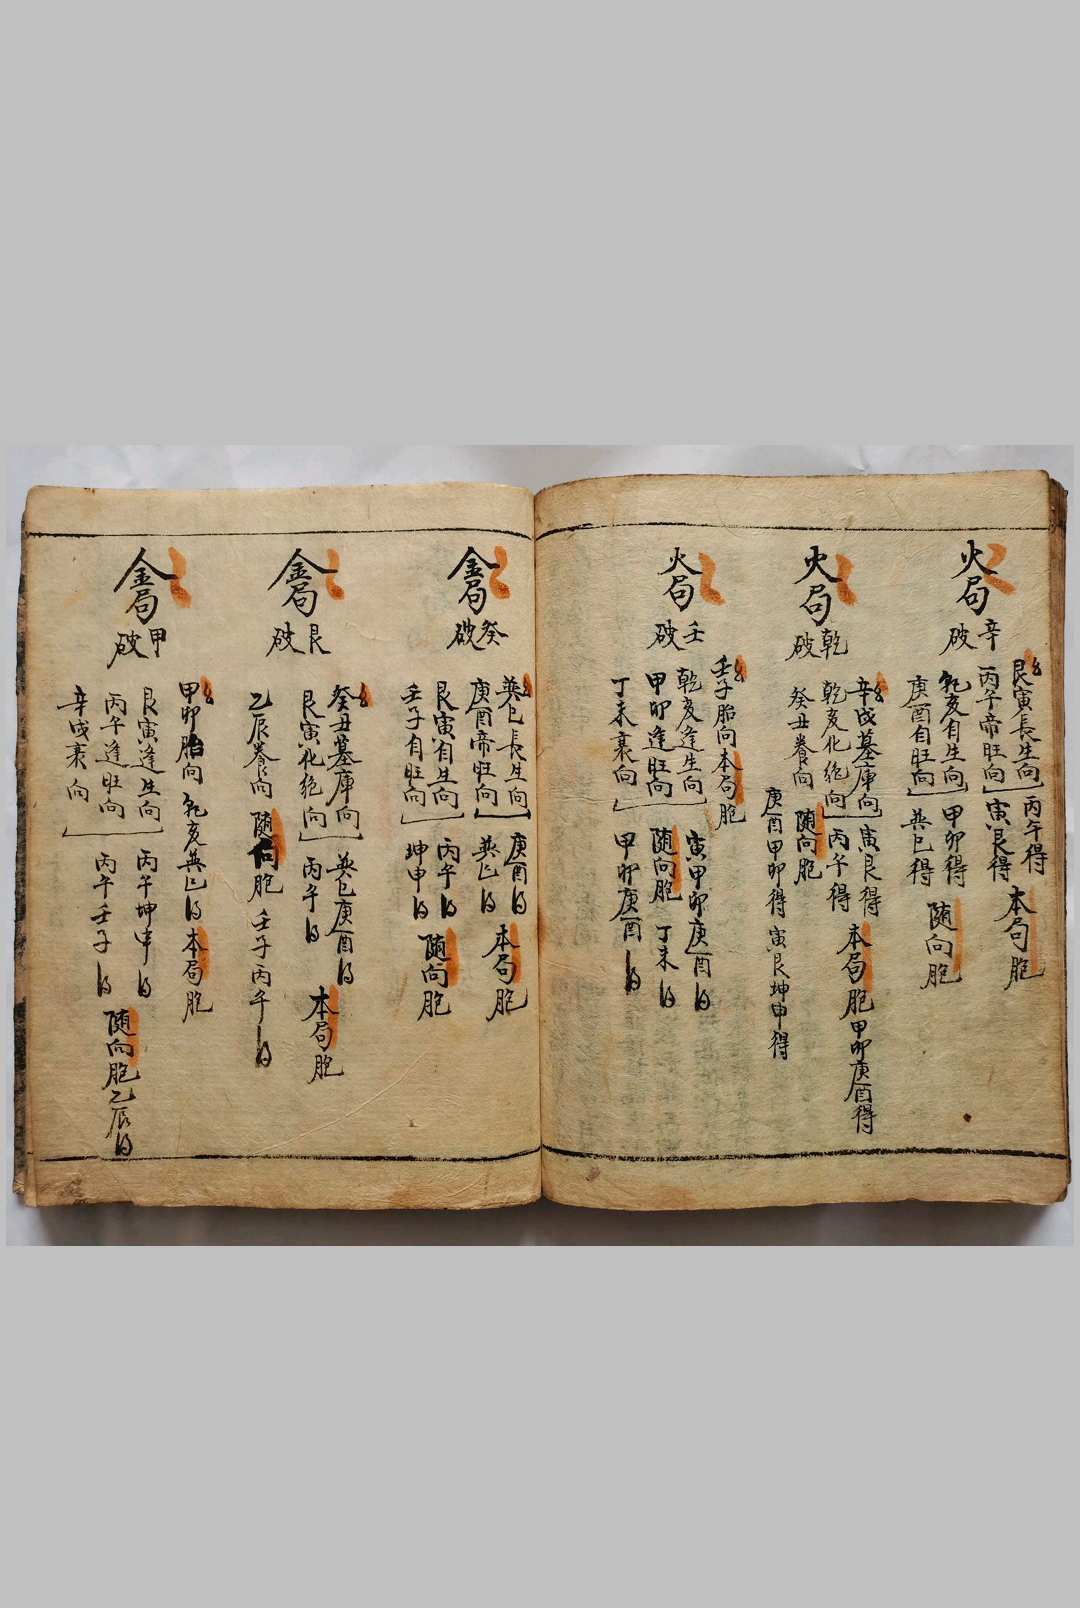 火局
辛破
艮寅長生向 丙午得 本局胞
丙午帝旺向 寅艮得
乾亥自生向 甲卯得 随向胞
庚酉自旺向 巽巳得
火局
乾破
辛戌墓庫向 寅艮得 本局胞 甲卯庚酉得
乾亥化絶向 丙午得
癸丑養向 随向胞
庚酉甲卯得 寅艮坤申得
火局
壬破
壬子胎向 本局胞
乾亥逢生向 寅甲卯庚酉得
甲卯逢旺向 随向胞 丁未得
丁未衰向 甲卯庚酉得
金局
癸破
巽巳長生向 庚酉得 本局胞
庚酉帝旺向 巽巳得
艮寅自生向 丙午得 随向胞
壬子自旺向 坤申得
金局
艮破
癸丑墓庫向 巽巳庚酉得
艮寅化絶向 丙午得 本局胞
乙辰養向 随向胞 壬子丙午得
金局
甲破
甲卯胎向 乾亥巽巳得 本局胞
艮寅逢生向 丙午坤申得
丙午逢旺向 丙午壬子得 随向胞 乙辰得
辛戌衰向